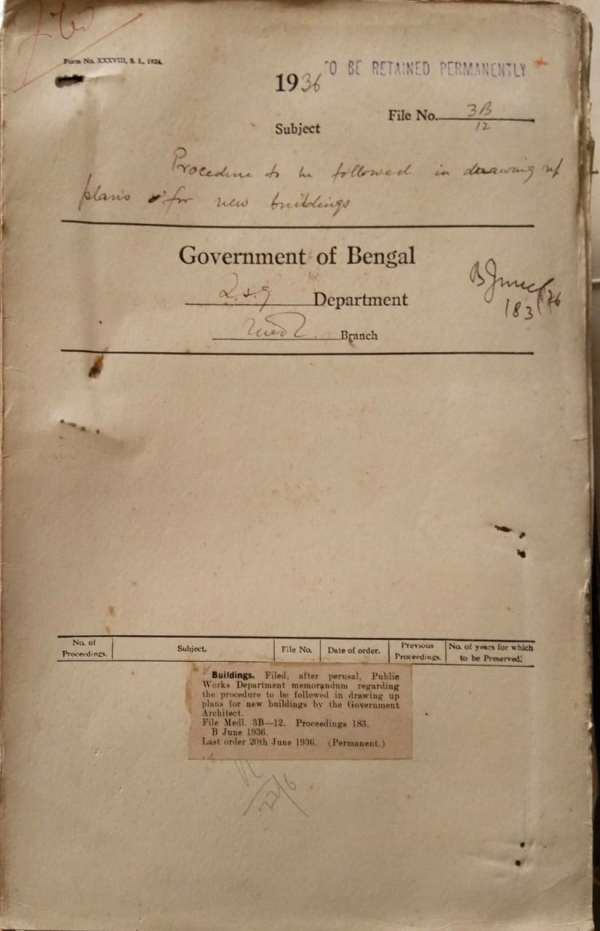 Filed
Form No. XXXVIII, S. I., 1924.
TO BE RETAINED PERMANENTLY
1936
File No. 3B/12
Subject
Procedure to be followed in drawing up
plans for new buildings
Government of Bengal
L.S.G Department
Medl Branch
B June /36
183
No. of Proceedings. Subject. File No. Date of order. Previous Proceedings. No. of years for which to be Preserved.
Buildings. Filed, after perusal, Public
Works Department memorandum regarding
the procedure to be followed in drawing up
plans for new buildings by the Government
Architect.
File Medl. 3B—12. Proceedings 183.
B June 1936.
Last order 20th June 1936. (Permanent.)
22/6